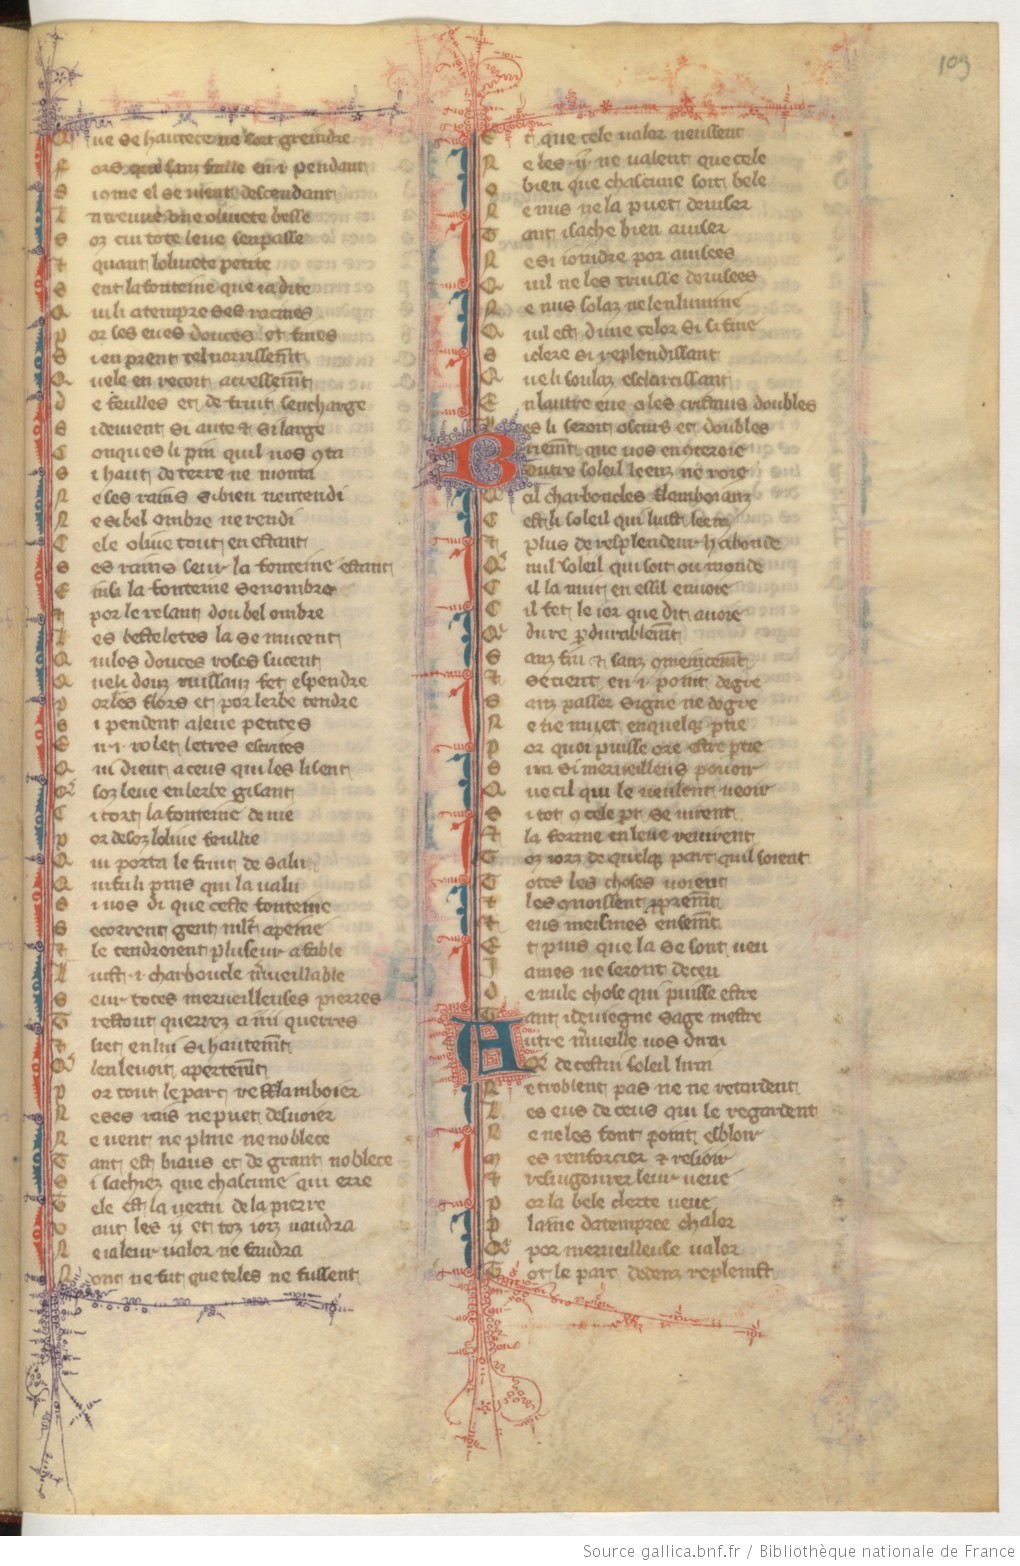 109
Que se hautece ne soit greindre
Fors que sanz faille en .i. pendant
Si qome el se vient descendant
La treuve one olivete basse
Soz cui tote leue senpasse
Et quant lolivete petite
Sent la fonteine que ia dite
Qui li atempre ses racines
Por ses eues douces et fines
Si en prent tel norrissemt
Quele en recoit acressemt
De feulles et de fruit sencharge
Si devient si aute et si large
Conques li pin quil vos 9ta
Si haut de terre ne monta
Ne ses rains si bien nentendi
Ne si bel ombre ne rendi
Cele olive tout en estant
Ses rains seur la fonteine estant
Einsi la fonteine senombre
Et por le resant dou bel ombre
Les besteletes la se mucent
Qui les douces roses sucent
Que li douz ruissanz fet espendre
Por les flors et por lerbe tendre
Si pendent a leue petites
En .i. rolet letres escrites
Qui dient a ceus qui les lisent
Qr soz leue en lerbe gisant
Ci cort la fonteine de vie
Por desoz lolive foullie
Qui porta le fruit de salu
Qui fu li pins qui la valu
Si vos di que ceste fonteine
Secorrent gent mlt a peine
Et le tendroient pluseur a fable
Luist .i. charboucle mveillable
Seur totes merveilleuses pierres
Trestout querrez a iiii querres
Et siet en lui si hautemt
Qr len levoit apertemt
Por tout le parc reflamboier
Ne ses rais ne puet desvoier
Ne vent ne pluie ne noblece
Tant est biaus et de grant noblece
Si sachiez que chascune qui erre
Tele est la vertu de la pierre
Vaut les ij et toz iorz vaudra
Ne ia leur valor ne faudra
Nonc ne fut que teles ne fussent
Et que cele valor neussent
Ne les ij ne valent que cele
O bien que chascune soit bele
Ne nus ne la puet deviser
Tant i sache bien aviser
Ne si ioindre por avisees
Quil ne les truisse devisees
Ne nus solaz ne lenlumine
Quil est dune color si fine
Si clere si replendissant
Que li soulaz esclarcissant
En lautre eue o les cristaus doubles
Les li seroit oscurs et doubles
Briemt que vos en 9teroie
Autre soleil leenz ne roie
Q cil charboucles flamboianz
Cest li soleil qui luist leenz
Et plus de resplendeur habonde
Qr nul soleil qui soit ou monde
Cil la nuit en essil envoie
Cil fet le ior que dit avoie
Qr dure pdurablemt
Sanz fin et sanz 9mencemt
Et se tient en .i. point degre
Sanz passer signe ne degre
Ne ne muet en quelq ptie
Por quoi puisse ore estre ptie
Si ra si merveilleus pooir
Que cil qui le veulent veoir
Si tot 9 cele pt se virent
Et la forme en leue remirent
Toz iorz de quelq part quil soient
Totes les choses voient
Et les qnoissent ppremt
Et eus meismes ensemt
Et puis que la se sont veu
Iames ne seront deceu
De nule chose qui puisse estre
Tant i deviegne sage mestre
Autre mveille vos dirai
Qr de cestui soleil lirai
Ne troblent pas ne ne retardent
Les eus de ceus qui le regardent
Ne ne les font point esbloir
Mes renforcier et resioir
Et resvigourer leur veue
Por la bele clerte veue
Plaine datempree chalor
Qr por merveilleuse valor
Tot le parc dedenz replenist
Source gallica.bnf.fr / Bibliothèque nationale de France